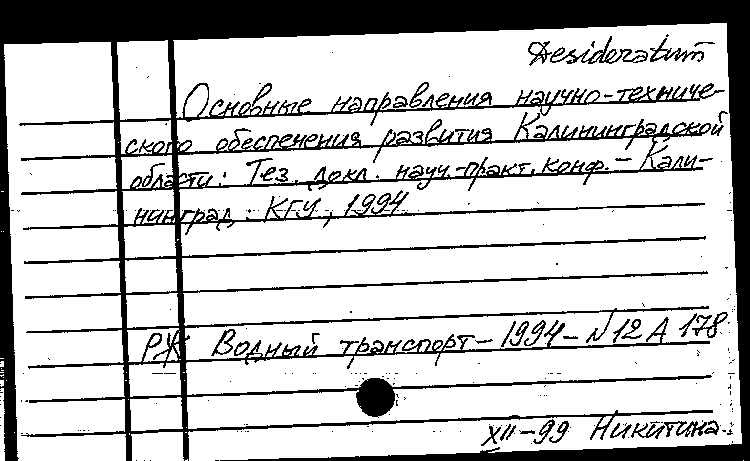 Desideratum
Основные направления научно-техниче-
ского обеспечения развития Калининградской
области: Тез. докл. науч.-практ. конф. – Кали-
нинград : КГУ, 1994
РЖ Водный транспорт – 1994 – N 12 А 178
XII – 99 Никитина.